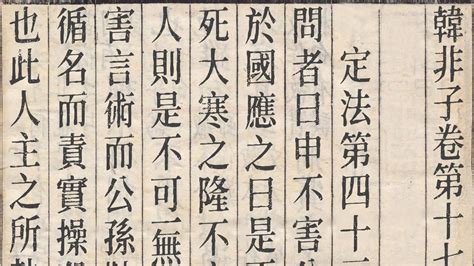 韓非子卷第十七
定法第四十
問者曰申不害公
於國應之曰是
死大寒之隆不
人則是不可一無
害言術而公孫
循名而責實操
也此人主之所執